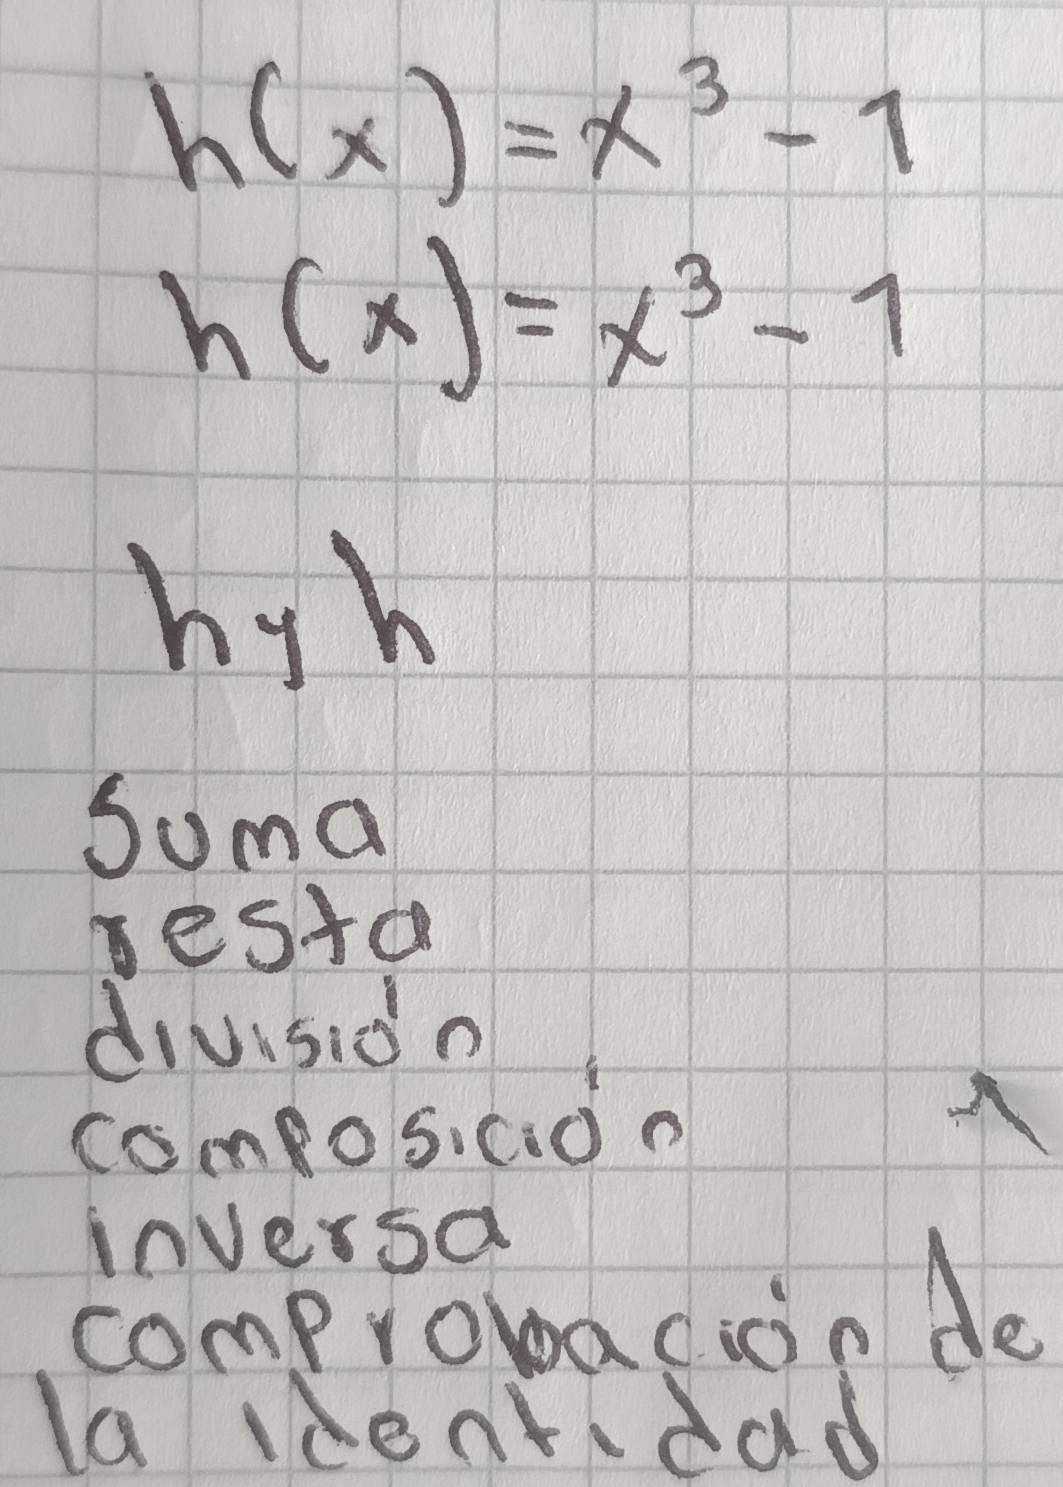 h(x)=x³-1
h(x)=x³-1
h y h
Suma
resta
división
composición
inversa
comprobación de
la identidad